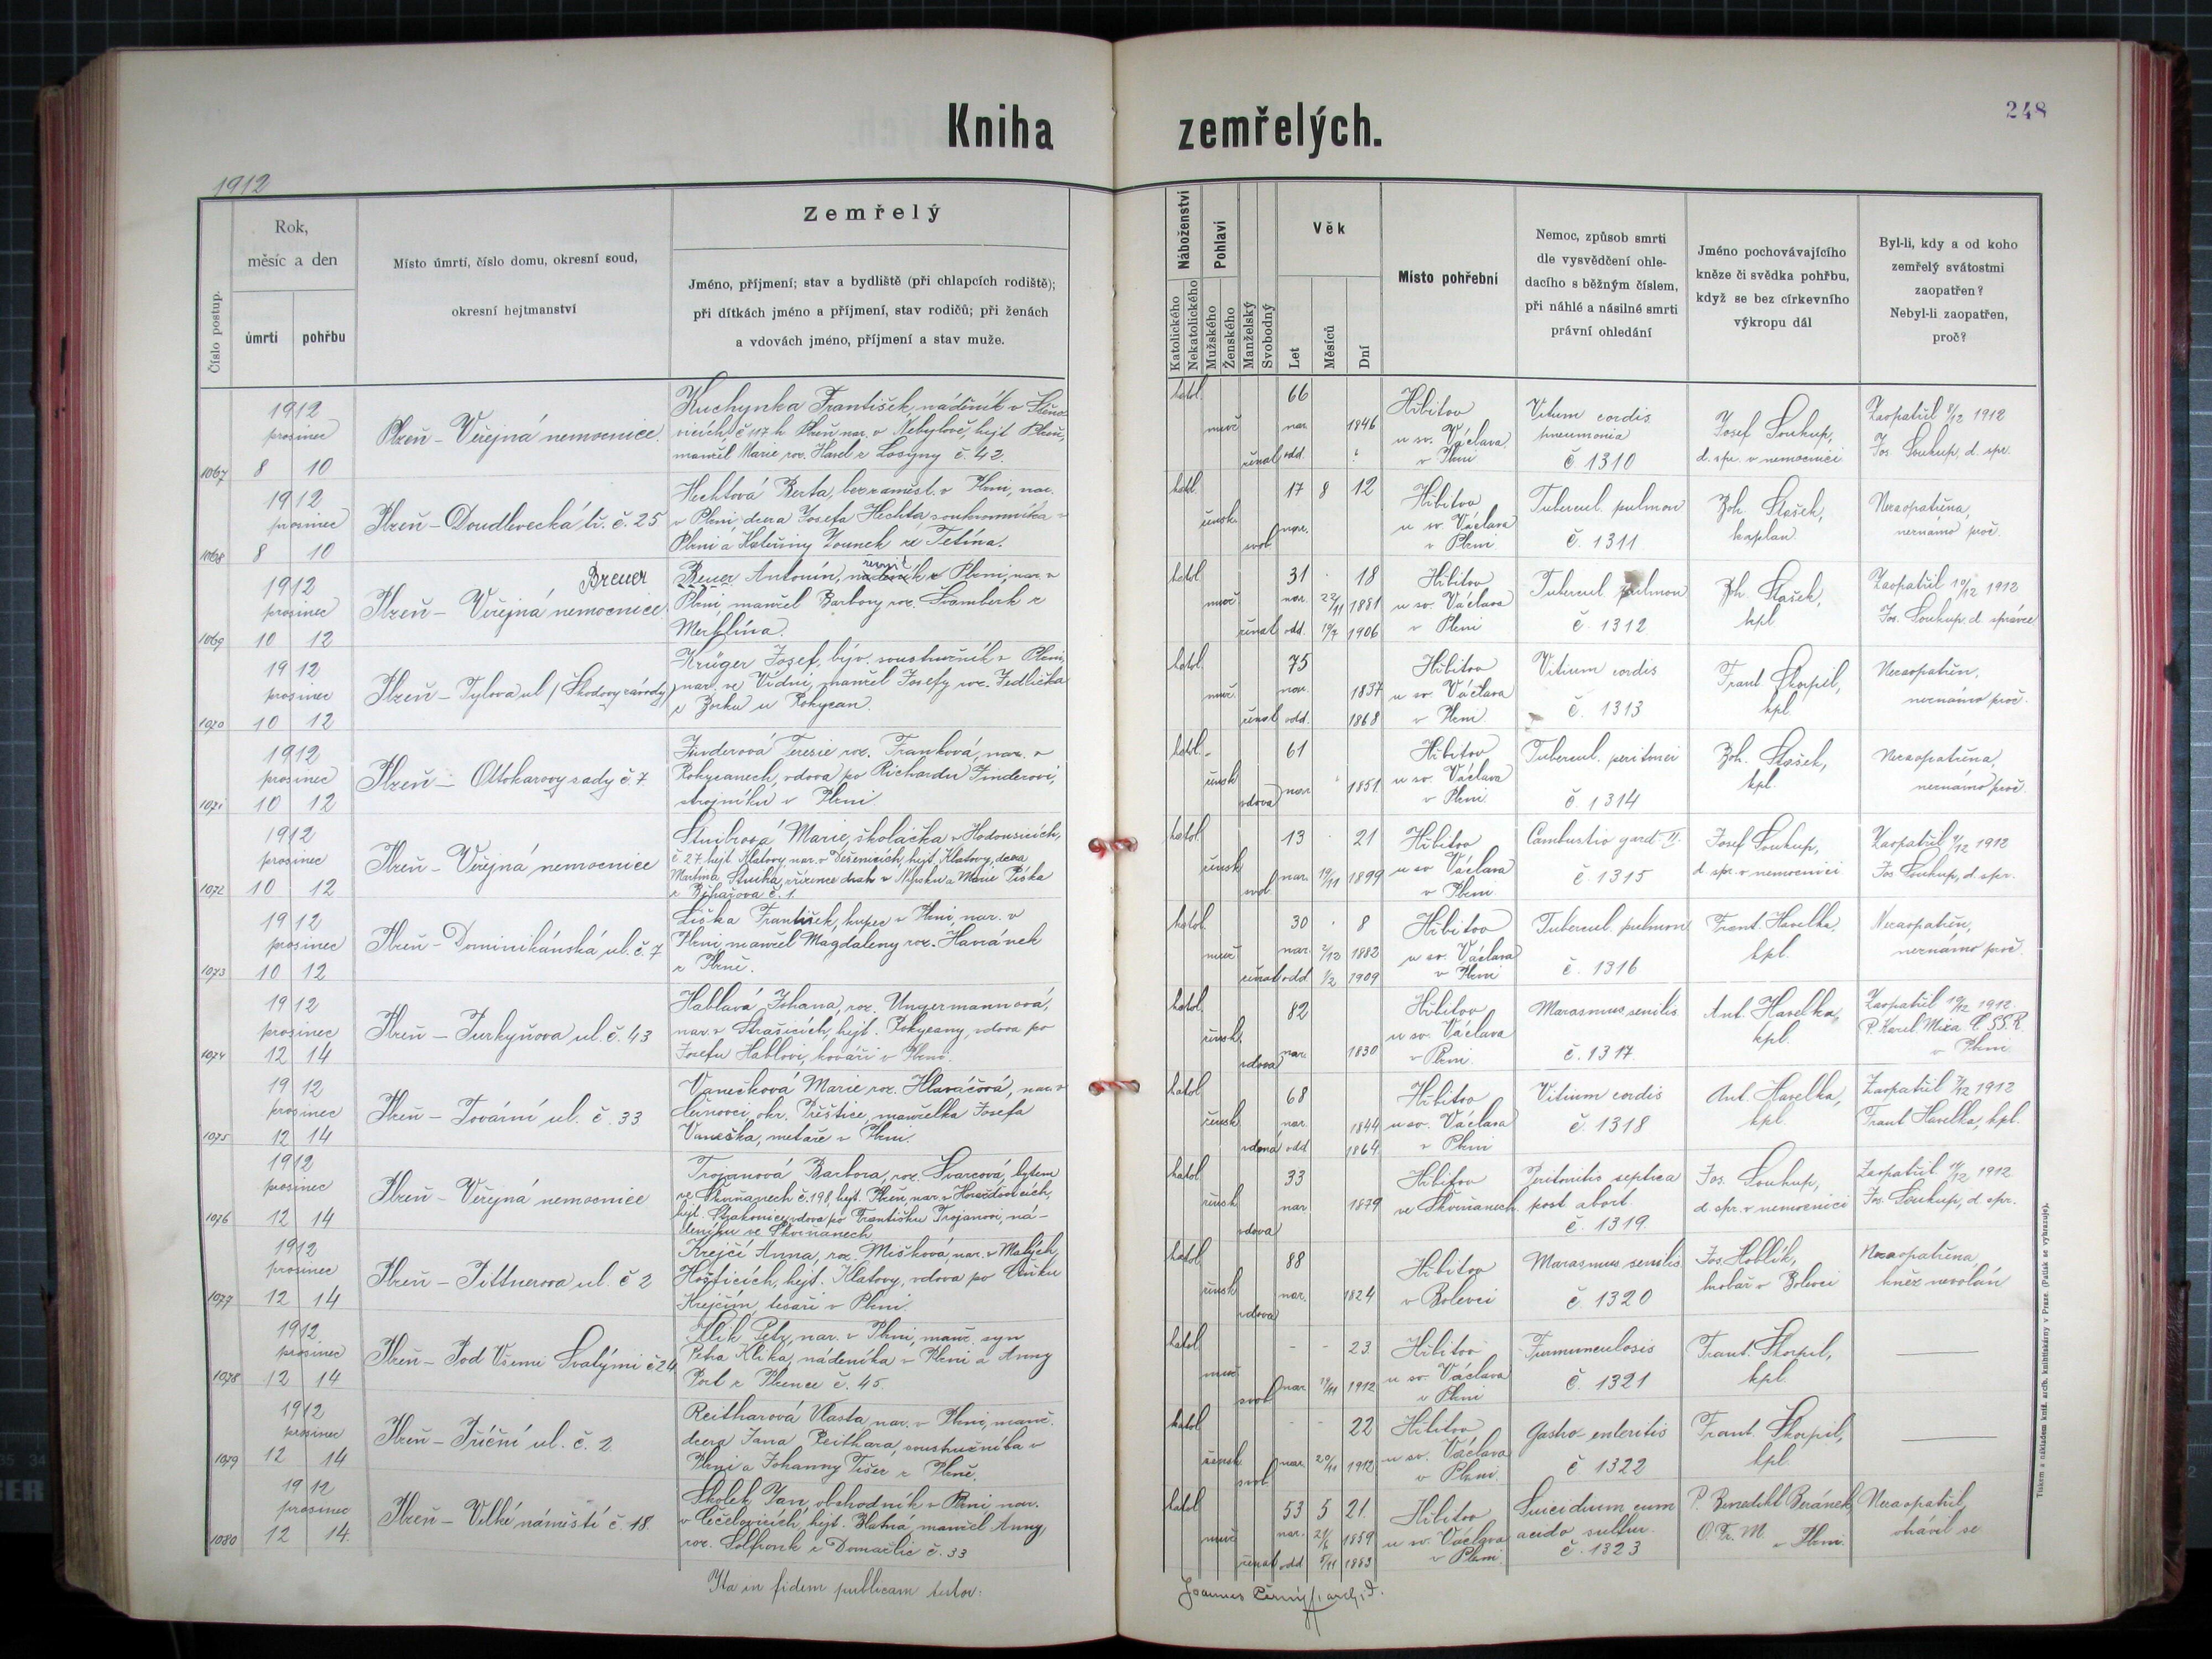 Kniha
zemřelých.
248
1912
Číslo postup.
Rok,
měsíc a den
úmrtí
pohřbu
Místo úmrtí, číslo domu, okresní soud,
okresní hejtmanství
Zemřelý
Jméno, příjmení; stav a bydliště (při chlapcích rodiště);
při dítkách jméno a příjmení, stav rodičů; při ženách
a vdovách jméno, příjmení a stav muže.
Náboženství
Katolického
Nekatolického
Pohlaví
Mužského
Ženského
Manželský
Svobodný
Věk
Let
Měsíců
Dní
Místo pohřební
Nemoc, způsob smrti
dle vysvědčení ohle-
dacího s běžným číslem,
při náhlé a násilné smrti
právní ohledání
Jméno pochovávajícího
kněze či svědka pohřbu,
když se bez církevního
výkropu dál
Byl-li, kdy a od koho
zemřelý svátostmi
zaopatřen?
Nebyl-li zaopatřen,
proč?
1067
1912
prosinec
8 10
Plzeň – Veřejná nemocnice
Kuchynka František, nádeník v Štěno-
vicích č 117 h. Plzeň nar. v Nebylově, hejt Plzeň,
manžel Marie roz. Havel z Losyny č. 42.
katol.
muž.
ženat
66
nar. 1846
odd. ?
Hřbitov
u sv. Václava
v Plzni
Vitium cordis
pneumonia
č. 1310
Josef Soukup,
d. spr. v nemocnici
Zaopatřil 8/12 1912
Jos. Soukup, d. spr.
1068
1912
prosinec
8 10
Plzeň – Doudlevecká tř. č. 25
Hechtová Berta, bez zaměst. v Plzni, nar.
v Plzni, dcera Josefa Hechta soukromníka v
Plzni a Kateřiny Zounek ze Tetína.
katol.
žensk.
svob
17 8 12
nar.
Hřbitov
u sv. Václava
v Plzni
Tubercul. pulmon
č. 1311
Boh. Stašek,
kaplan.
Nezaopatřena,
neznámo proč.
1069
1912
prosinec
10 12
Plzeň – Veřejná nemocnice
Breuer
Beuer Antonín, v Plzni, nar. v
Plzni, manžel Barbory roz. Švamberk z
Merklína.
katol
muž.
ženat
31 . 18
nar. 22/11 1881
odd. 1906
Hřbitov
u sv. Václava
v Plzni
Tubercul. pulmon
č. 1312
Boh. Stašek,
kpl
Zaopatřil 10/12 1912
Jos. Soukup, d. správce
1070
1912
prosinec
10 12
Plzeň – Tylova ul (Škodovy závody)
Krüger Josef, býv. soustružník v Plzni,
nar. ve Vídni, manžel Josefy roz. Jedlička
z Borku u Rokycan.
katol.
muž.
ženat
75
nar. 1837
odd. 1868
Hřbitov
u sv. Václava
v Plzni
Vitium cordis
č. 1313
Frant Škorpil,
kpl.
Nezaopatřen,
neznámo proč.
1071
1912
prosinec
10 12
Plzeň – Ottokarovy sady č. 7.
Finderová Terezie roz. Franková, nar. v
Rokycanech, vdova po Richardu Finderovi,
strojníku v Plzni
katol.
žensk
vdova
61
nar 1851
Hřbitov
u sv. Václava
v Plzni
Tubercul. peritonei
č 1314
Boh. Stašek,
kpl.
Nezaopatřena,
neznámo proč.
1072
1912
prosinec
10 12
Plzeň – Veřejná nemocnice
Marie, školačka v Hodousicích,
č 27. hejt. Klatovy, nar. v Dešenicích, hejt. Klatovy, dcera
Martina zřízence drah v Nýrsku a Marie Piska
z č. 1.
katol.
žensk
svob.
13 . 21
nar. 19/11 1899
Hřbitov
u sv Václava
v Plzni
Combustio grad II.
č. 1315
Josef Soukup,
d. spr. v nemocnici
Zaopatřil 9/12 1912
Jos Soukup, d. spr.
1073
1912
prosinec
10 12
Plzeň – Dominikánská ul. č. 7
Liška František, kupec v Plzni, nar. v
Plzni, manžel Magdaleny roz. Havránek
z Plzně.
katol.
muž
ženat
30 . 8
nar. 2/12 1882
odd 1/2 1909
Hřbitov
u sv. Václava
v Plzni
Tubercul. pulmon
č. 1316
Frant. Havelka,
kpl.
Nezaopatřen,
neznámo proč.
1074
1912
prosinec
12 14
Plzeň – Purkyňova ul. č. 43
Hablavá Johana, roz. Ungermannová,
nar. v Strašicích, hejt. Rokycany, vdova po
Josefu Hablovi, kováři v Plzni.
katol.
žensk.
vdova
82
nar 1830
Hřbitov
u sv. Václava
v Plzni.
Marasmus senilis
č. 1317.
Ant. Havelka,
kpl.
Zaopatřil 1912.
P. Karel Mixa C. SS. R.
v Plzni
1075
1912
prosinec
12 14
Plzeň – Tovární ul. č. 33
Vanešková Marie roz. Hlaváčová, nar. v
okr. Přeštice, manželka Josefa
Vaneška, metaře v Plzni.
katol
žensk
vdaná
68
nar. 1844
odd 1864
Hřbitov
u sv. Václava
v Plzni
Vitium cordis
č. 1318
Ant. Havelka,
kpl.
Zaopatřil 1912
Frant Havelka, kpl.
1076
1912
prosinec
12 14
Plzeň – Veřejná nemocnice
Trojanová Barbora, roz. Švarcová, bytem
ve Skvrňanech č. 198, hejt. Plzeň, nar. v Horažďovicích,
hejt. Strakonice, vdova po Františku Trojanovi, ná-
deníku ve Skvrňanech.
katol
žensk
vdova
33
nar. 1879
Hřbitov
ve Skvrňanech
Peritonitis septica
post abort.
č. 1319.
Jos. Soukup,
d. spr. v nemocnici
Zaopatřil 1912
Jos. Soukup, d. spr.
1077
1912
prosinec
12 14
Plzeň – Pittnerova ul. č 2
Krejčí Anna, roz. Mišková, nar. v Malých
Hošticích, hejt. Klatovy, vdova po
Krejčím, tesaři v Plzni.
katol
žensk
vdova
88
nar. 1824
Hřbitov
v Bolevci
Marasmus senilis
č. 1320
Jos. Hoblík,
hrobař v Bolevci
Nezaopatřena,
kněz nevolán
1078
1912
prosinec
12 14
Plzeň – Pod Všemi Svatými č 24
Klik Petr, nar. v Plzni, manž. syn
Petra Klika, nádeníka v Plzni a Anny
z Plzence č. 45.
katol.
muž
svob
- - 23
nar 19/11 1912
Hřbitov
u sv. Václava
v Plzni
Furunculosis
č. 1321
Frant. Škorpil,
kpl.
1079
1912
prosinec
12 14
Plzeň – Příční ul. č. 2.
Reitharová Vlasta, nar. v Plzni, manž.
dcera Jana Reithara, soustružníka v
Plzni a Johanny Tišer z Plzně.
katol
žensk
svob
- - 22
nar. 20/11 1912
Hřbitov
u sv. Václava
v Plzni
Gastro-enteritis
č. 1322
Frant. Škorpil,
kpl.
1080
1912
prosinec
12 14.
Plzeň – Velké náměstí č. 18.
Skolek Jan, obchodník v Plzni, nar.
v Čečelovicích, hejt. Blatná, manžel Anny,
roz. z Domažlic č. 33
katol
muž
ženat
53 5 21.
nar. 21/6 1859
odd 5/11 1883
Hřbitov
u sv. Václava
v Plzni
Suicidium cum
acido sulfur.
č. 1323
P. Benedikt Beránek,
O. Fr. M v Plzni.
Nezaopatřil,
otrávil se
Ita in fidem publicam testor:
Joannes Černý, arch. d.
Tiskem a nákladem kníž. arcib. knihtiskárny v Praze. (Patisk se vyhrazuje).